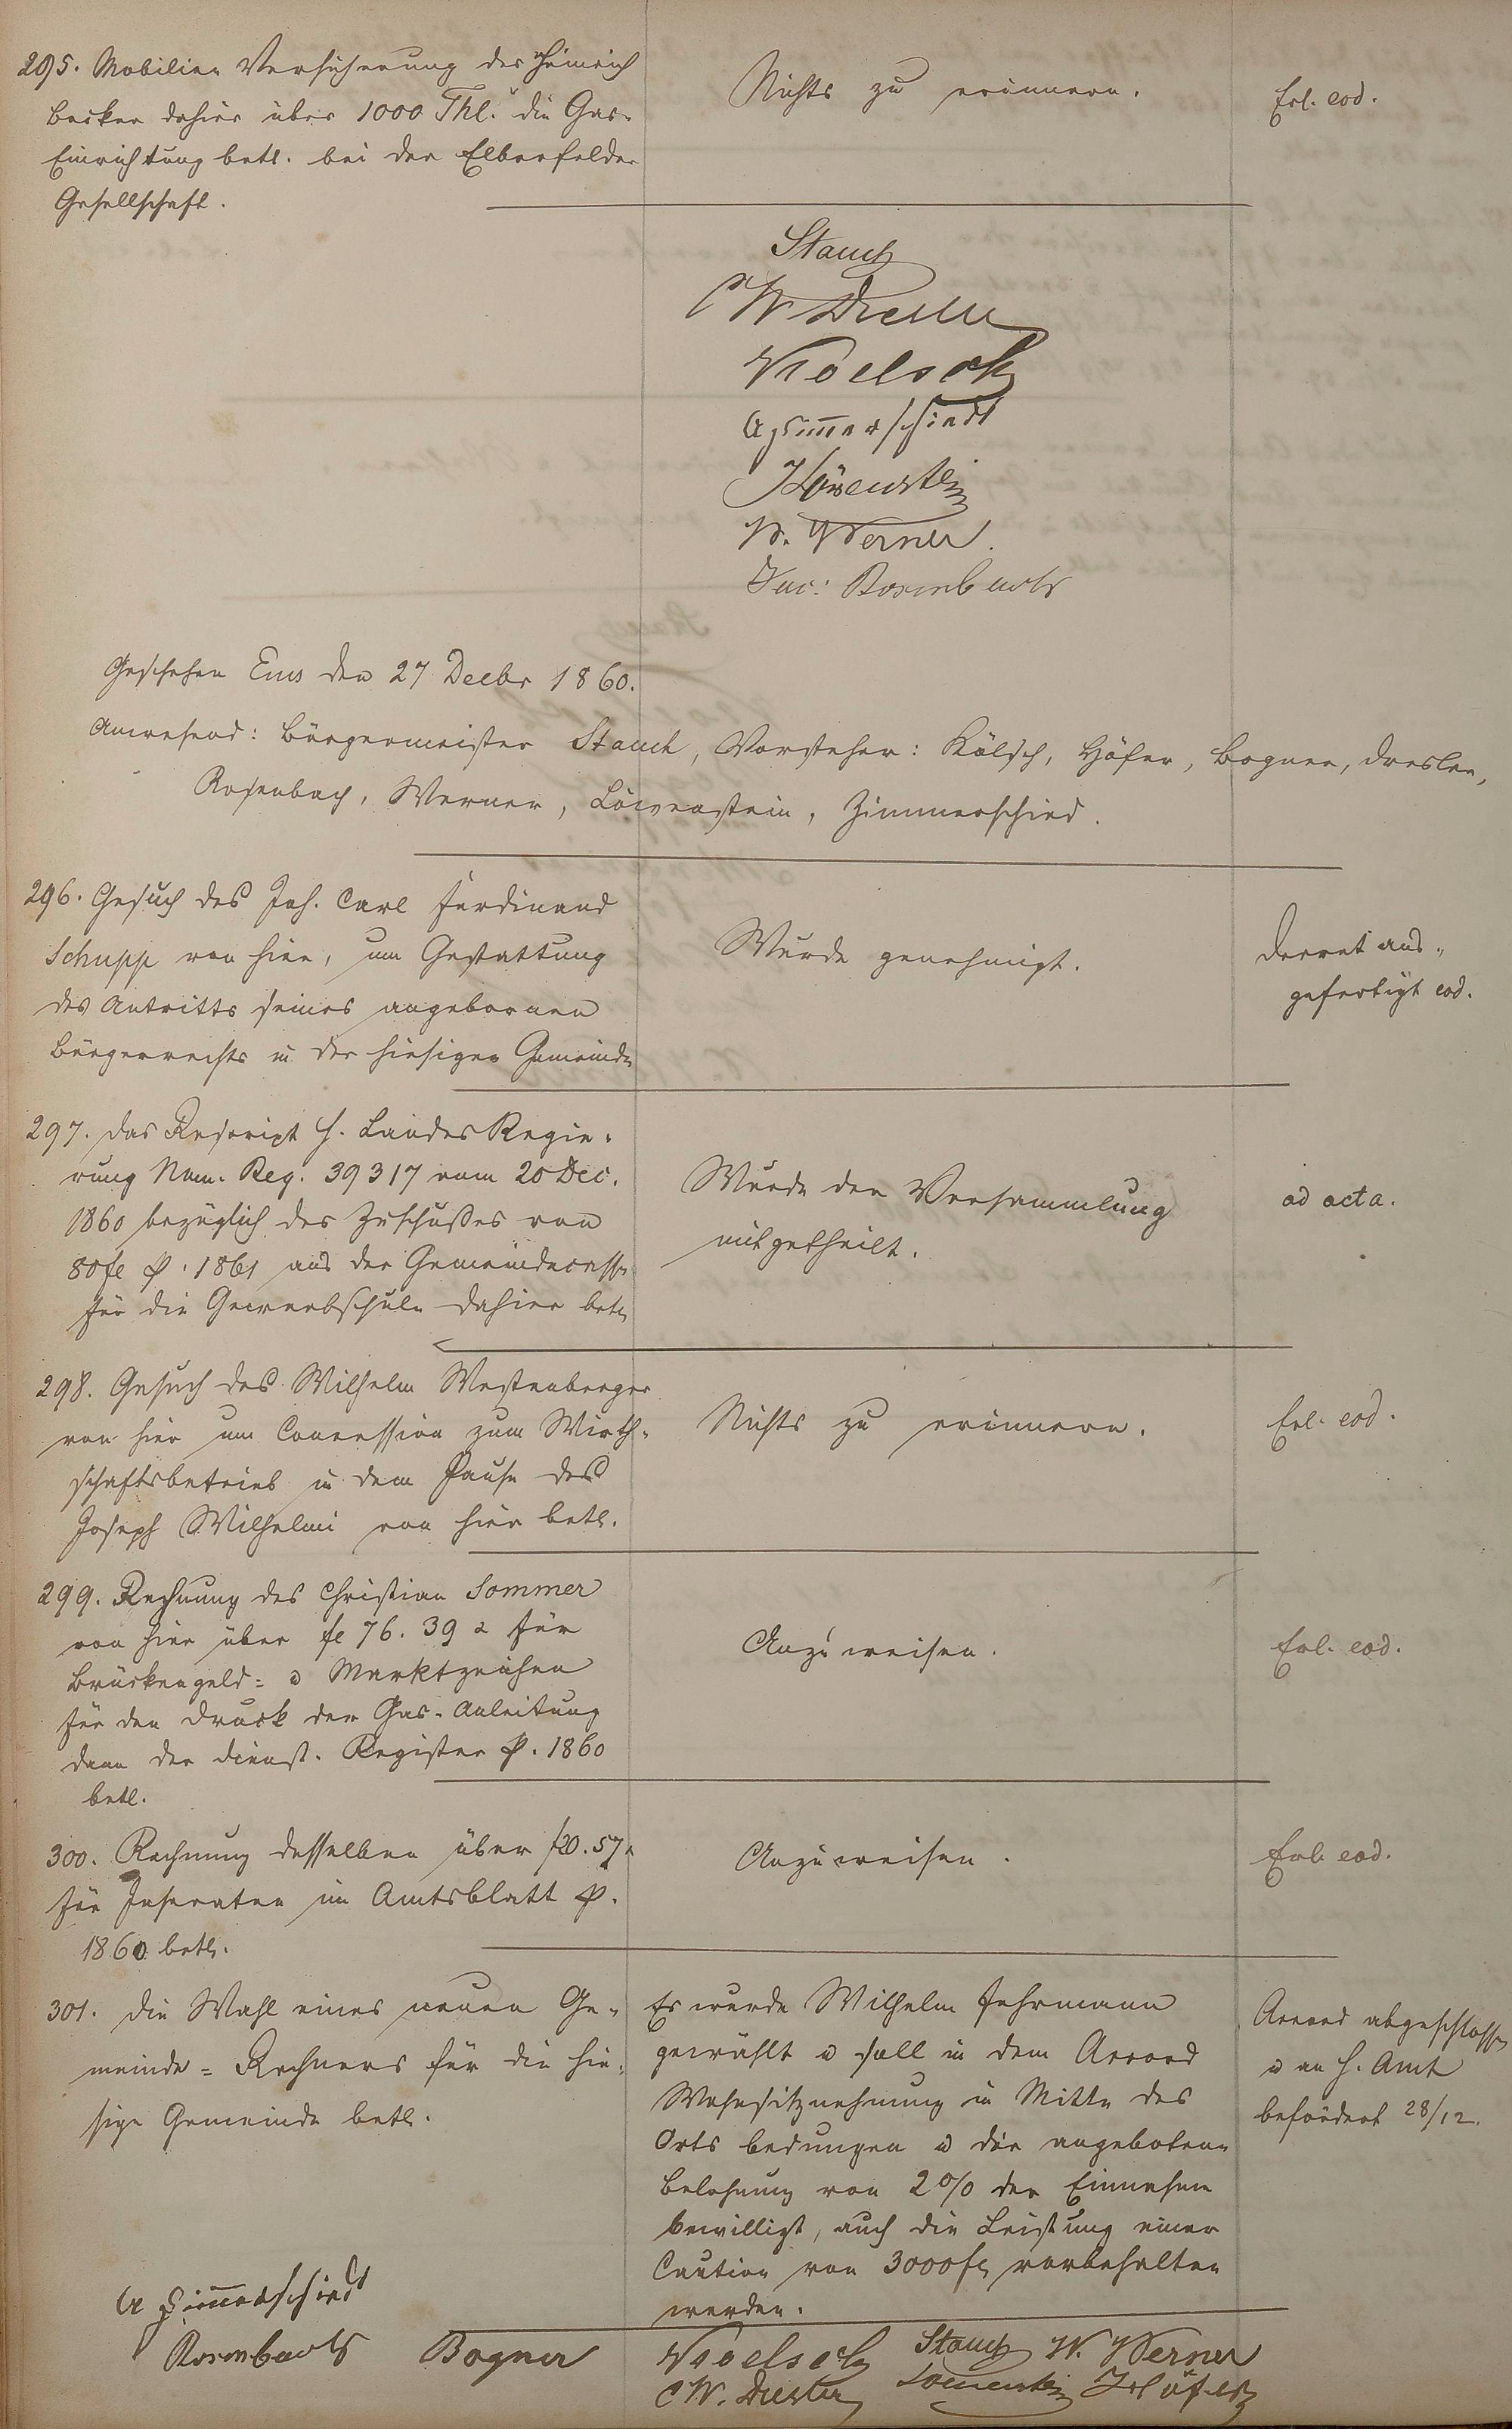 295. Mobilien Versicherung des Heinrich
Becker dahier über 1000 Thl. die Gas-
Einrichtung betr. bei der Elberfelder
Gesellschaft.
Nichts zu erinnern.
Erl. eod.
Stauch
C W Dresler
Koelsch
A Zimmerschiedt
Löwenstein
W. Werner
Jac: Rosenbach
Geschehen Ems den 27 Decbr 1860.
Anwesend: Bürgermeister Stauch, Vorsteher: Kölsch, Höfer, Bogner, Dresler,
Rosenbach, Werner, Löwenstein, Zimmerschied.
296. Gesuch des Joh. Carl Ferdinand
Schupp von hier, um Gestattung
des Antritts seines angebornen
Bürgerrechts in der hiesigen Gemeinde
Wurde genehmigt.
Decret aus-
gefertigt eod.
297. Das Rescript H. Landes Regie-
rung Num. Reg. 39317 vom 20 Dec.
1860 bezüglich des Zuschußes von
80 fl p. 1861 aus der Gemeindecasse
für die Gewerbschule dahier betr.
Wurde der Versammlung
mitgetheilt.
ad acta.
298. Gesuch des Wilhelm Westenberger
von hier um Concession zum Wirth-
schaftsbetrieb in dem Hause des
Joseph Wilhelmi von hier betr.
Nichts zu erinnern.
Erl. eod.
299. Rechnung des Christian Sommer
von hier über fl 76. 39 x für
Brückengeld- u Marktzeichen
für den Druck der Gas-Anleitung
dann der Dienst-Register p. 1860
betr.
Anzuweisen.
Erl. eod.
300. Rechnung desselben über f 20. 57 x
für Inseraten im Amtsblatt p.
1860 betr.
Anzuweisen.
Erl. eod.
301. Die Wahl eines neuen Ge-
meinde-Rechners für die hie-
sige Gemeinde betr.
Es wurde Wilhelm Fuhrmann
gewählt u soll in dem Accord
Wohnsitznehmung in Mitte des
Orts bedungen u die angebotene
Belohnung von 2% der Einnahme
bewilligt, auch die Leistung einer
Caution von 3000 fl vorbehalten
werden.
Accord abgeschlossen
u an H. Amt
befördert 28/12.
A Zimmerschiedt
Rosenbach Bogner Koelsch Stauch W. Werner
C W. Dresler Löwenstein J Höfer